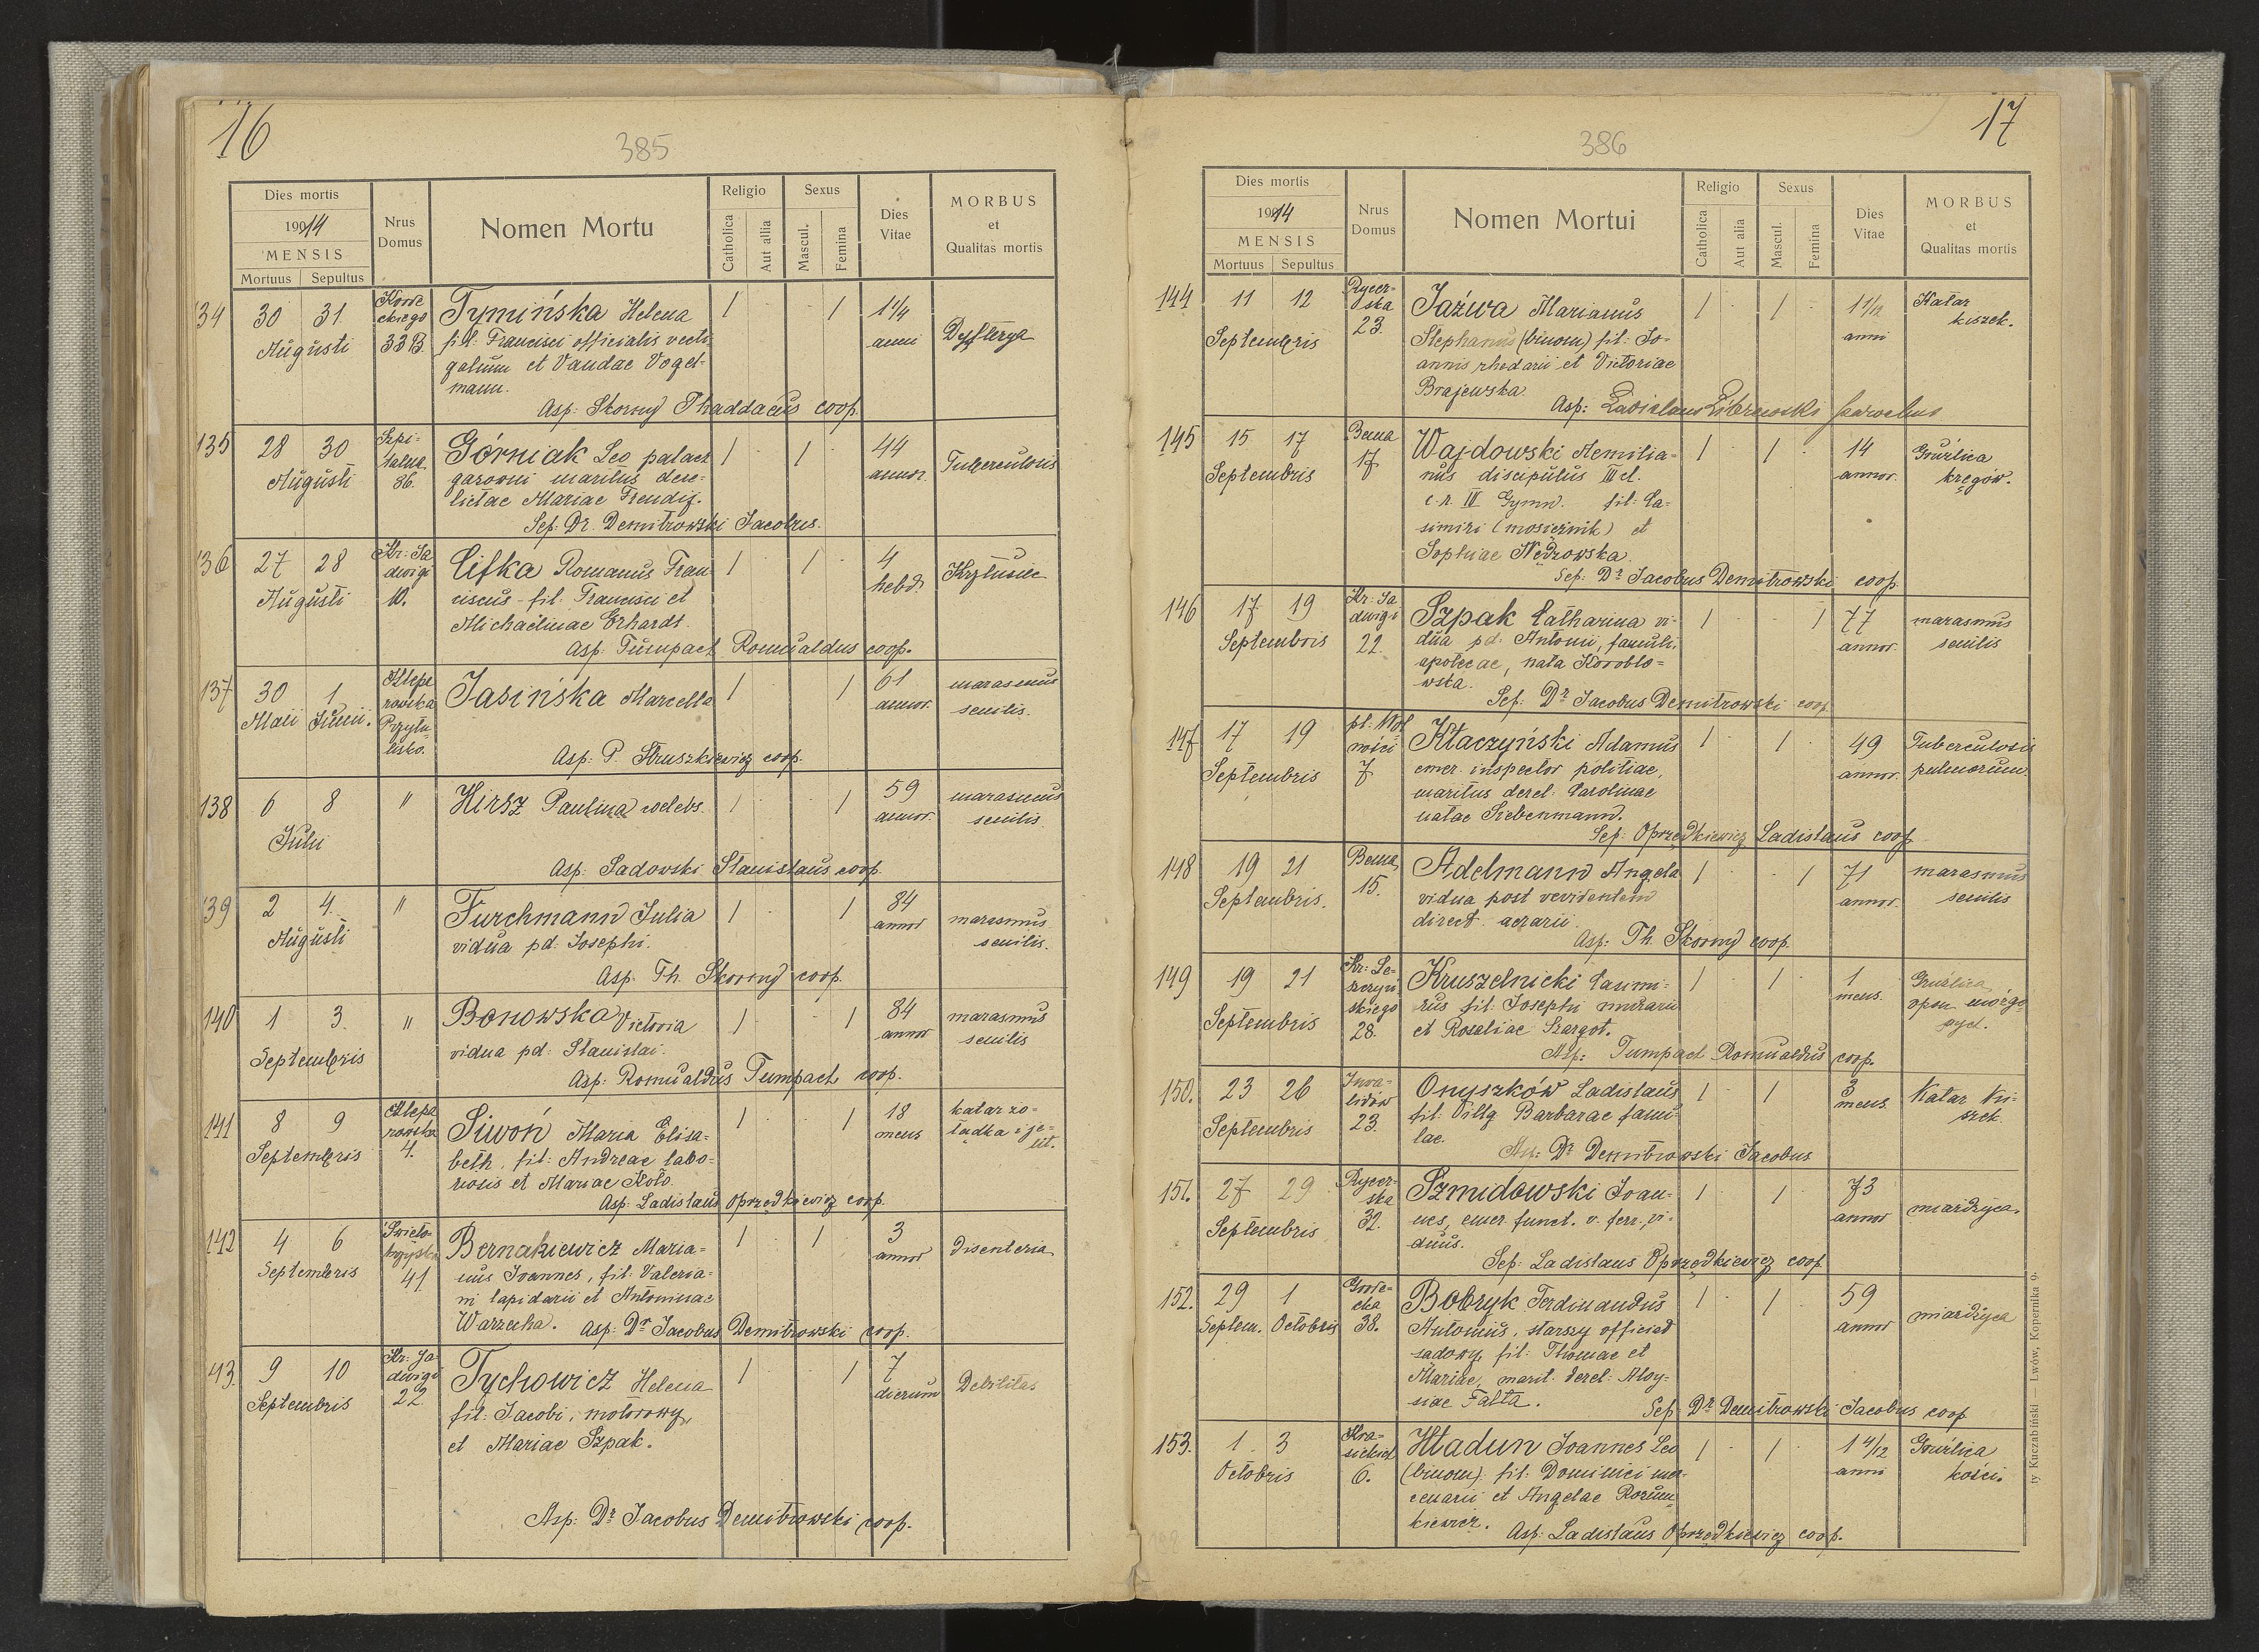 16
385
Dies mortis
1914
MENSIS
Mortuus Sepultus
Nrus
Domus
Nomen Mortu
Religio
Catholica
Aut allia
Sexus
Mascul.
Femina
Dies
Vitae
MORBUS
et
Qualitas mortis
134 30 31 33B. Tymińska Helena 1 1 1 1/4
Augusti fil: Francisci officialis vecti anni Dyfterya
galium et Vandae Vogel-
mann.
Asp: Skorny Thaddaeus coop.
135 28 30 Szpi- Górniak Leo palacz 1 1 44 Tuberculosis
Augusti talna gazowni maritus dere- annor.
36. lictae Mariae Freudig.
Sep: Dr. Demitrowski Jacobus.
136 27 28 Kr: Ja Cifka Romanus Fran- 1 1 4 Krztusiec
Augusti dwigi ciscus fil: Francisci et hebd.
10. Michaelinae Erhardt.
Asp: Tumpach Romualdus coop.
137 30 1 Jasińska Marcella 1 1 61 marasmus
Maii Junii. annor. senilis.
Przytu-
lisko.
Asp: P. Struszkiewicz coop.
138 6 8 " Hirsz Paulina coelebs. 1 1 59 marasmus
Julii annor. senilis.
Asp: Sadowski Stanislaus coop.
139 2 4. " Furchmann Julia 1 1 84 marasmus
Augusti vidua pd: Josephi. annor senilis.
Asp: Th. Skorny coop.
140 1 3. " Bonowska Victoria 1 1 84 marasmus
Septembris vidua pd: Stanislai. annor senilis
Asp: Romualdus Tumpach coop.
141 8 9 4. Siwoń Maria Elisa- 1 1 18 katar żo-
Septembris beth, fil: Andreae labo- mens łądka i je-
riosis et Mariae Koło. lit.
Asp: Ladislaus Oprzędkiewicz coop.
142 4 6 Święto- Bernakiewicz Maria- 1 1 3 disenteria
Septembris krzyska nus Joannes, fil: Valeria- annor
41. ni lapidarii et Antoninae
Warzecha. Asp: Dr Jacobus Demitrowski coop.
143. 9 10 Kr: Ja- Tychowicz Helena 1 1 7 Debilitas
Septembris dwigi fil: Jacobi, motorowy, dierum
22. et Mariae Szpak.
Asp: Dr Jacobus Demitrowski coop.
17
386
Dies mortis
1914
MENSIS
Mortuus Sepultus
Nrus
Domus
Nomen Mortui
Religio
Catholica
Aut alia
Sexus
Mascul.
Femina
Dies
Vitae
MORBUS
et
Qualitas mortis
144 11 12 Rycer- Jaźwa Marianus 1 1 Katar
Septembris ska Stephanus (binom) fil: Jo- anni kiszek.
23. annis rhedarii et Victoriae
Brajewska.
Asp:
145 15 17 Bema Wajdowski Aemilia- 1 1 14 Gruźlica
Septembris 17 nus discipulus III cl. annor. kręgów.
c. r. IV Gymn. fil: Ca-
simiri (mosiężnik) et
Sophiae Nędzowska.
Sep: Dr Jacobus Demitrowski coop.
146 17 19 Kr: Ja Szpak Catharina vi- 1 1 77 marasmus
Septembris dwigi dua pd: Antonii, famuli annor. senilis
22. apotecae, nata Koroblo-
wska.
Sep: Dr Jacobus Demitrowski coop
147 17 19 pl. Wol Kłaczyński Adamus 1 1 49 Tuberculosis
Septembris ności emer. inspector politiae, annor. pulmorum.
7 maritus derel. Carolinae
natae Siebenmann.
Sep: Oprzędkiewicz Ladislaus coop.
148 19 21 Bema Adelmann Angela 1 1 71 marasmus
Septembris. 15. vidua post revidentem annor. senilis
direct. aerarii.
Asp: Th. Skorny coop.
149 19 21 Kruszelnicki Casimi- 1 1 1 Gruźlica
Septembris 28. rus fil: Josephi murarii mens. opon mózgo-
et Rosaliae Szargot. wych.
Asp: Tumpach Romualdus coop.
150. 23 26 Inwa- Onyszków Ladislaus 1 1 3 Katar ki-
Septembris lidów fil: illg Barbarae famu- mens. szek.
23. lae.
Asp: Dr Demitrowski Jacobus
151. 27 29 Rycer- Szmidowski Joan- 1 1 73 miażdżyca.
Septembris ska nes, emer. funct. v. ferr., vi- annor
32. duus.
Sep: Ladislaus Oprzędkiewicz coop
152. 29 1 Gróde- Bobryk Ferdinandus 1 1 59 miażdżyca
Septem. Octobris cka Antonius, starszy official annor
38. sądowy, fil: Thomae et
Mariae, marit. derel. Aloy-
siae Falta.
Sep: Dr Demitrowski Jacobus coop
153. 1. 3 Kra- Hładun Joannes Leo 1 1 1 4/12 Gruźlica
Octobris sickich (binom): fil: Dominici mer- anni kości.
6. cenarii et Angelae Rozum-
kiewicz.
Asp: Ladislaus Oprzędkiewicz coop.
ty Kuczabiński — Lwów, Kopernika 9.